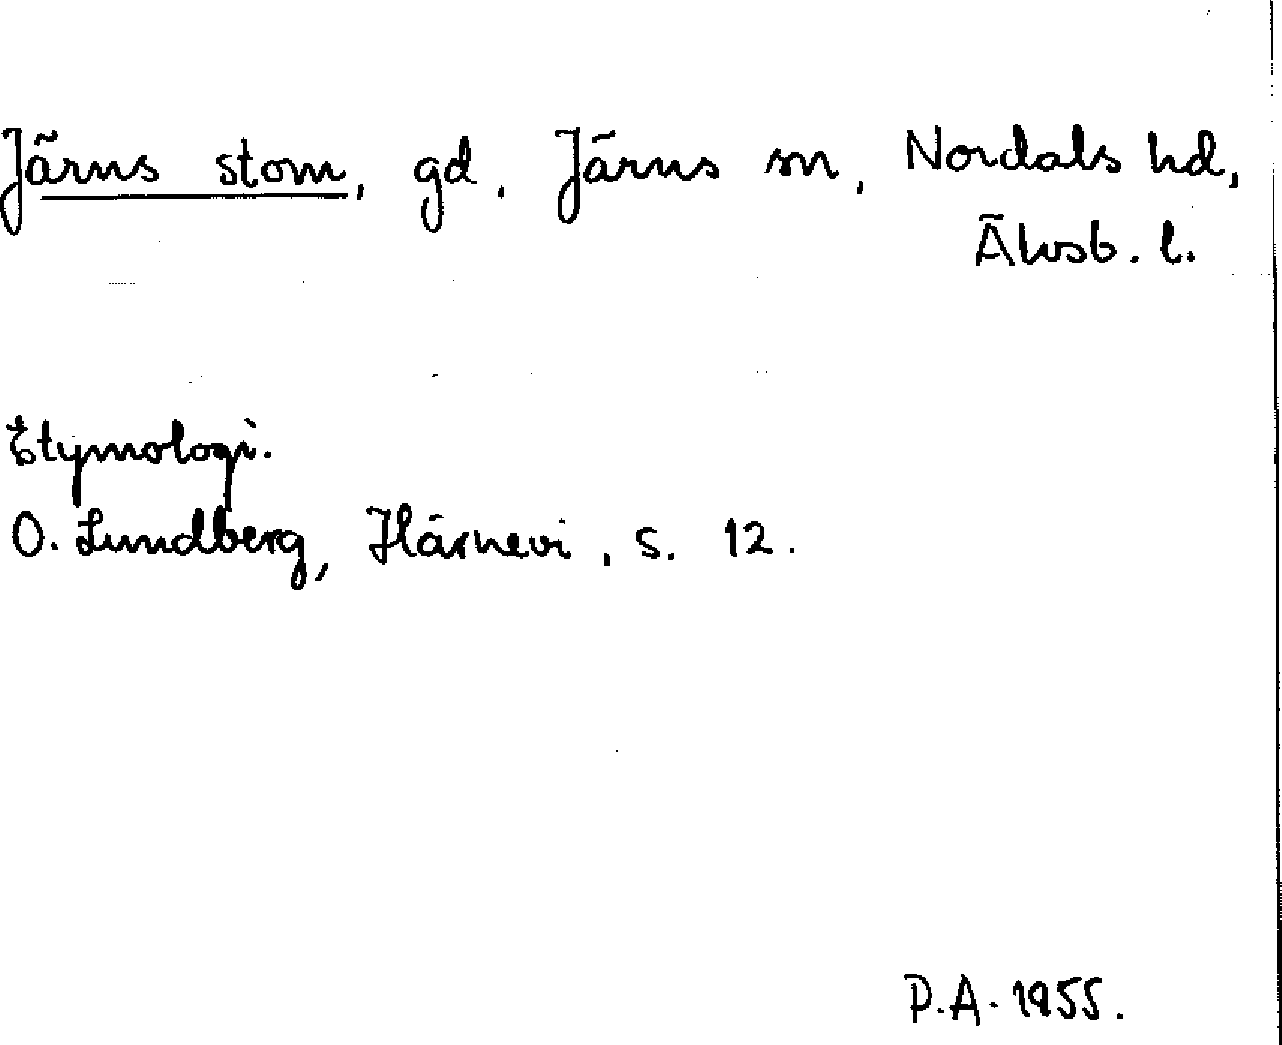 Järns stom, gd. Järns sn, Nordals hd,
Älvsb. l.
Etymologi.
O. Lundberg, Härnevi, s. 12.
P.A. 1955.